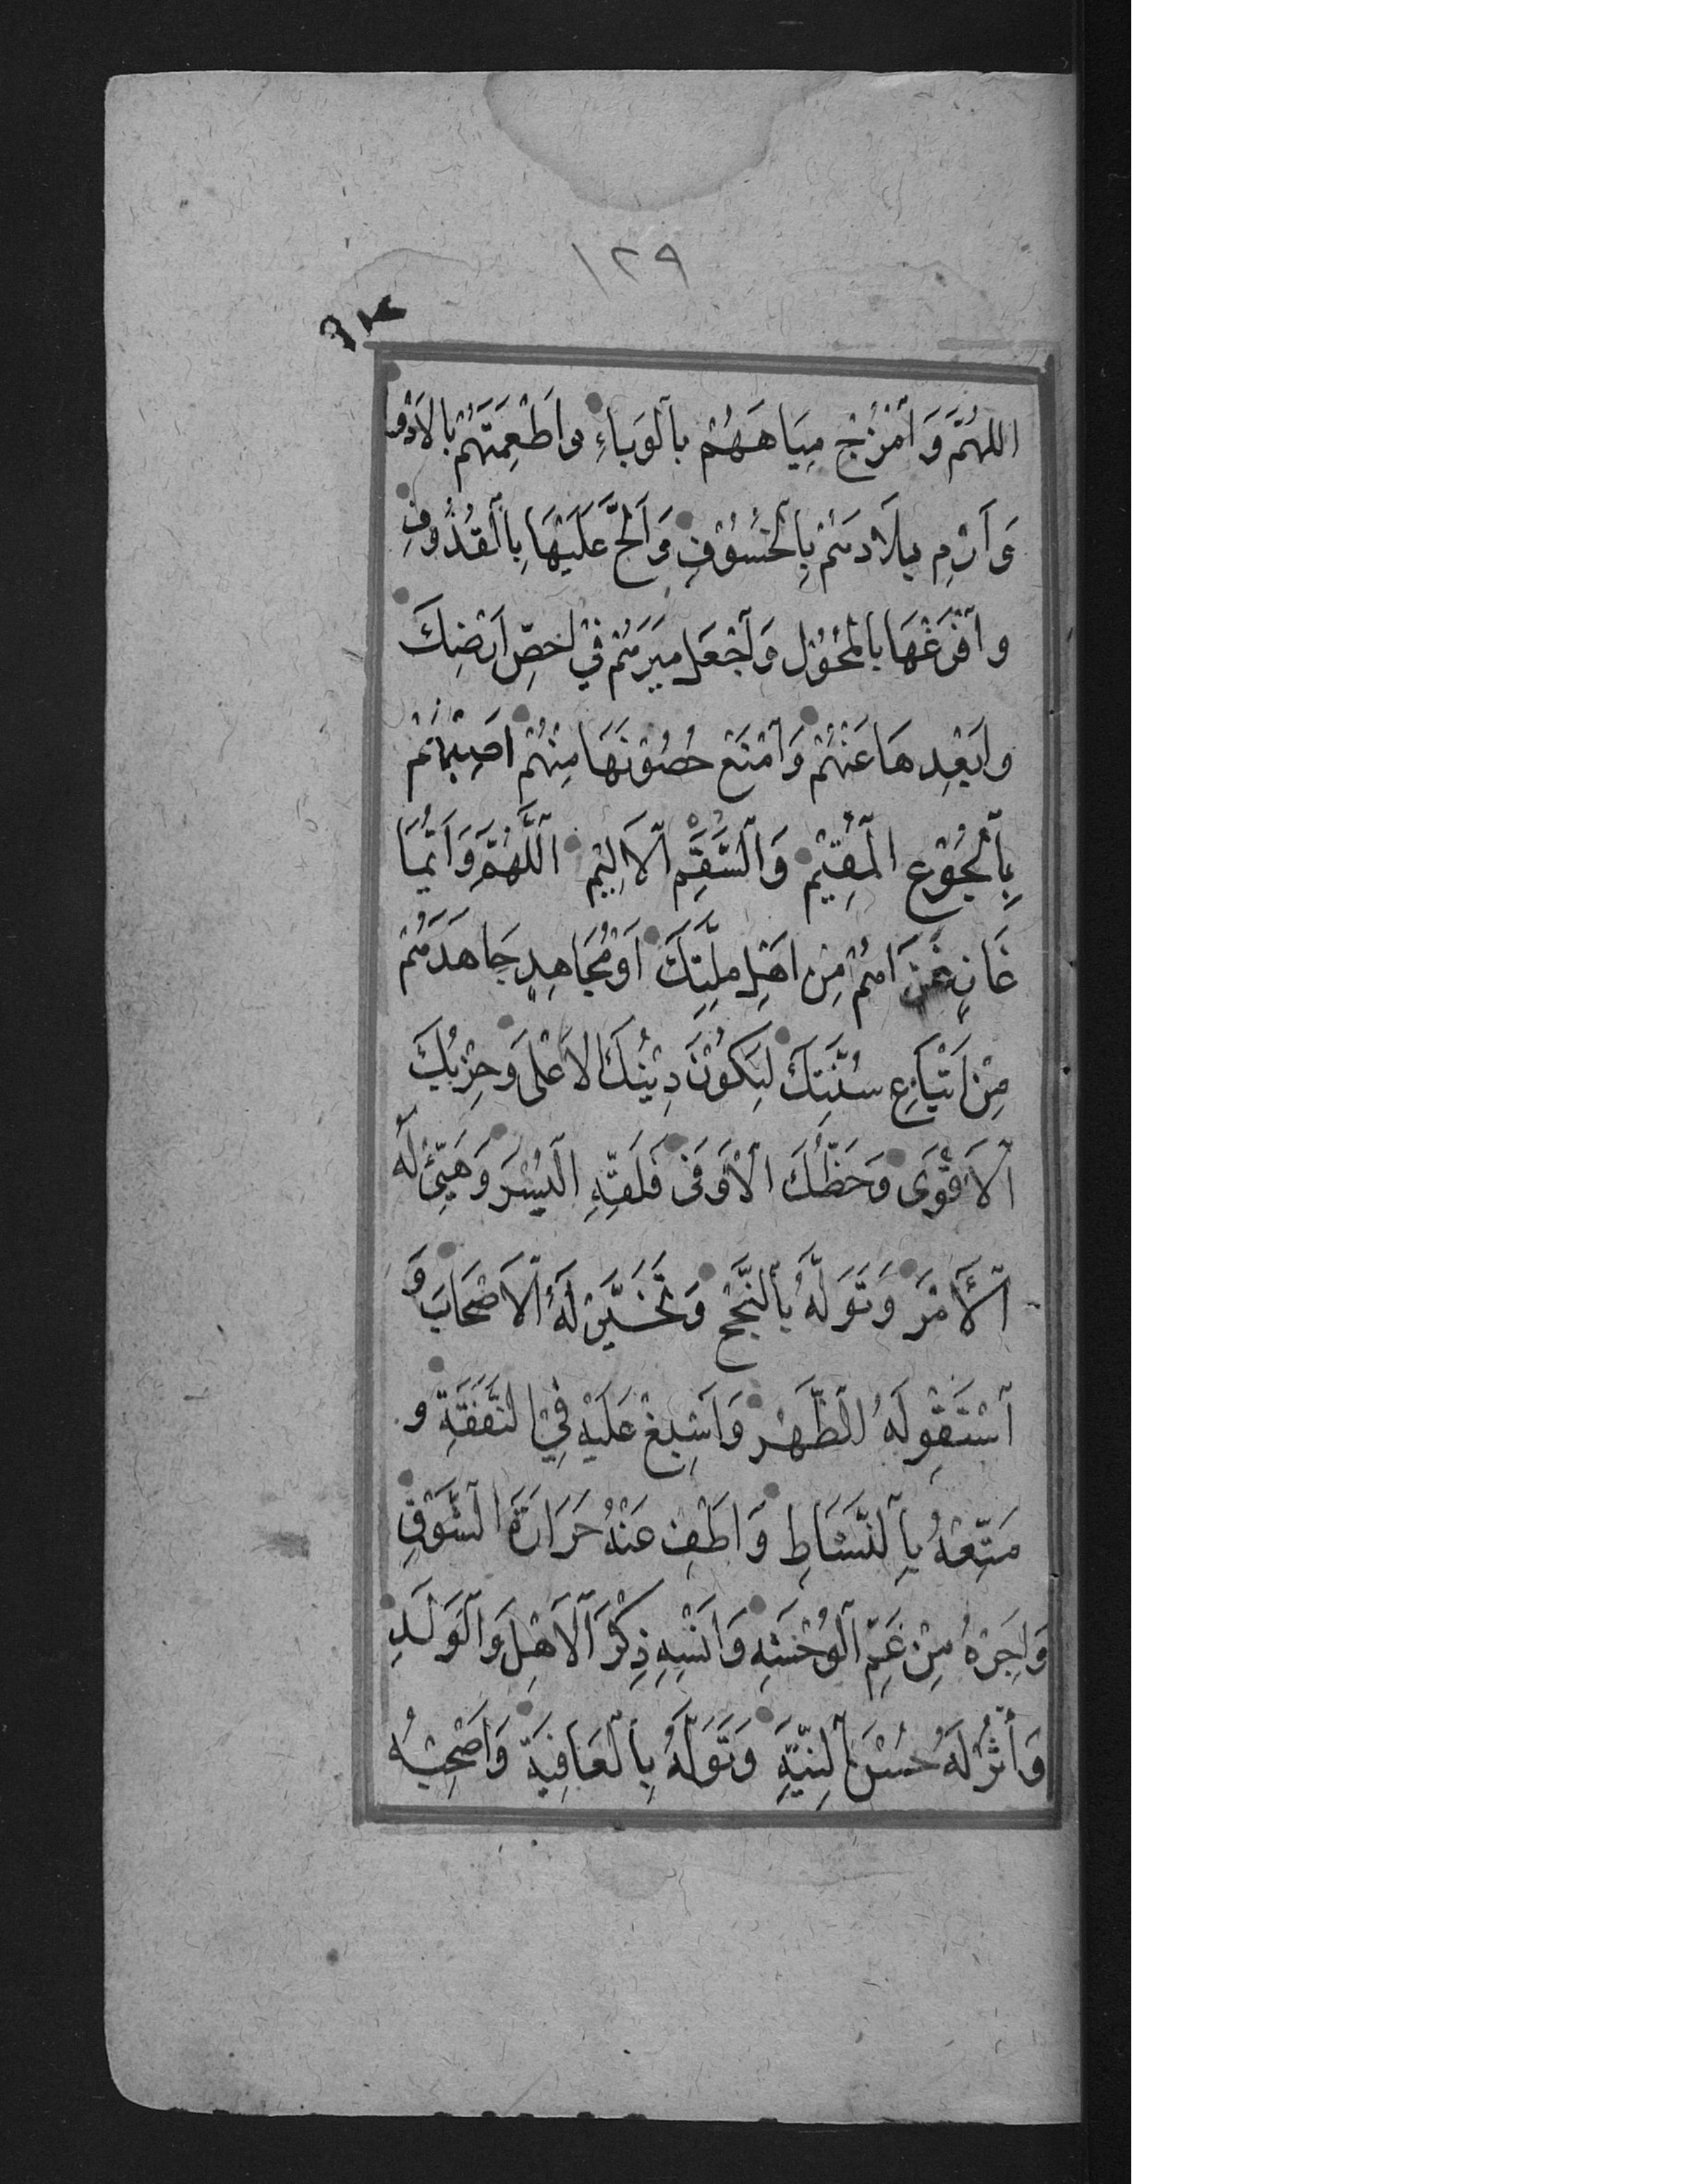 ١٢٩
اللهُمَّ وَامْزُجْ مِيَاهَهُمْ بِالْوَبَاءِ وَاَطْعِمَتَهُمْ بِالْاَدْوَا
وَارْمِ بِلَادَهُمْ بِالْخُسُوْفِ وَاَلِحَّ عَلَيْهَا بِالْقُذُوْفِ
وَافْرَغْهَا بِالْمُحُوْلِ وَاجْعَلْ مِيَرَهُمْ فِيْ اَحَصِّ اَرْضِكَ
وَاَبْعِدِهَا عَنْهُمْ وَامْنَعْ حُصُوْنَهَا مِنْهُمْ اَصِبْهُمْ
بِالْجُوْعِ الْمُقِيْمِ وَالسُّقْمِ الْاَلِيْمِ اللّٰهُمَّ وَاَيُّمَا
غَازٍ غَزَاهُمْ مِنْ اَهْلِ مِلَّتِكَ اَوْ مُجَاهِدٍ جَاهَدَهُمْ
مِنْ اَتْبَاعِ سُنَّتِكَ لِيَكُوْنَ دِيْنُكَ الْاَعْلٰى وَحِزْبُكَ
الْاَقْوٰى وَحَظُّكَ الْاَوْفٰى فَلَقِّهِ الْيُسْرَ وَهَيِّئْ لَهُ
الْاَمْرَ وَتَوَلَّهُ بِالنُّجْحِ وَتَخَيَّرْ لَهُ الْاَصْحَابَ وَ
اسْتَقْوِ لَهُ الظَّهْرَ وَاَسْبِغْ عَلَيْهِ فِي النَّفَقَةِ وَ
مَتِّعْهُ بِالنَّشَاطِ وَاَطْفِ عَنْهُ حَرَارَةَ الشَّوْقِ
وَاَجِرْهُ مِنْ غَمِّ الْوَحْشَةِ وَاَنْسِهِ ذِكْرَ الْاَهْلِ وَالْوَلَدِ
وَأْثُرْ لَهُ حُسْنَ النِّيَّةِ وَتَوَلَّهُ بِالْعَافِيَةِ وَاَصْحِبْهُ